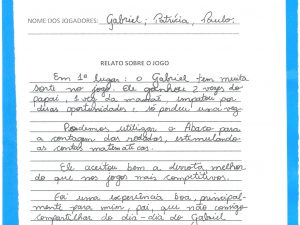 NOME DOS JOGADORES: Gabriel; Patrícia, Paulo.
RELATO SOBRE O JOGO
Em 1º lugar: o Gabriel tem muita
sorte no jogo. Ele ganhou 2 vezes do
papai, 1 vez da mamãe, empatou por
duas oportunidades e só perdeu uma vez
Podemos utilizar o Ábaco para
a contagem das rodadas, estimulando
as contas matemáticas.
Ele aceitou bem a derrota melhor
do que nos jogos mais competitivos.
Foi uma experiência boa, principal-
mente para mim, pai, que não consigo
compartilhar do dia-dia do Gabriel